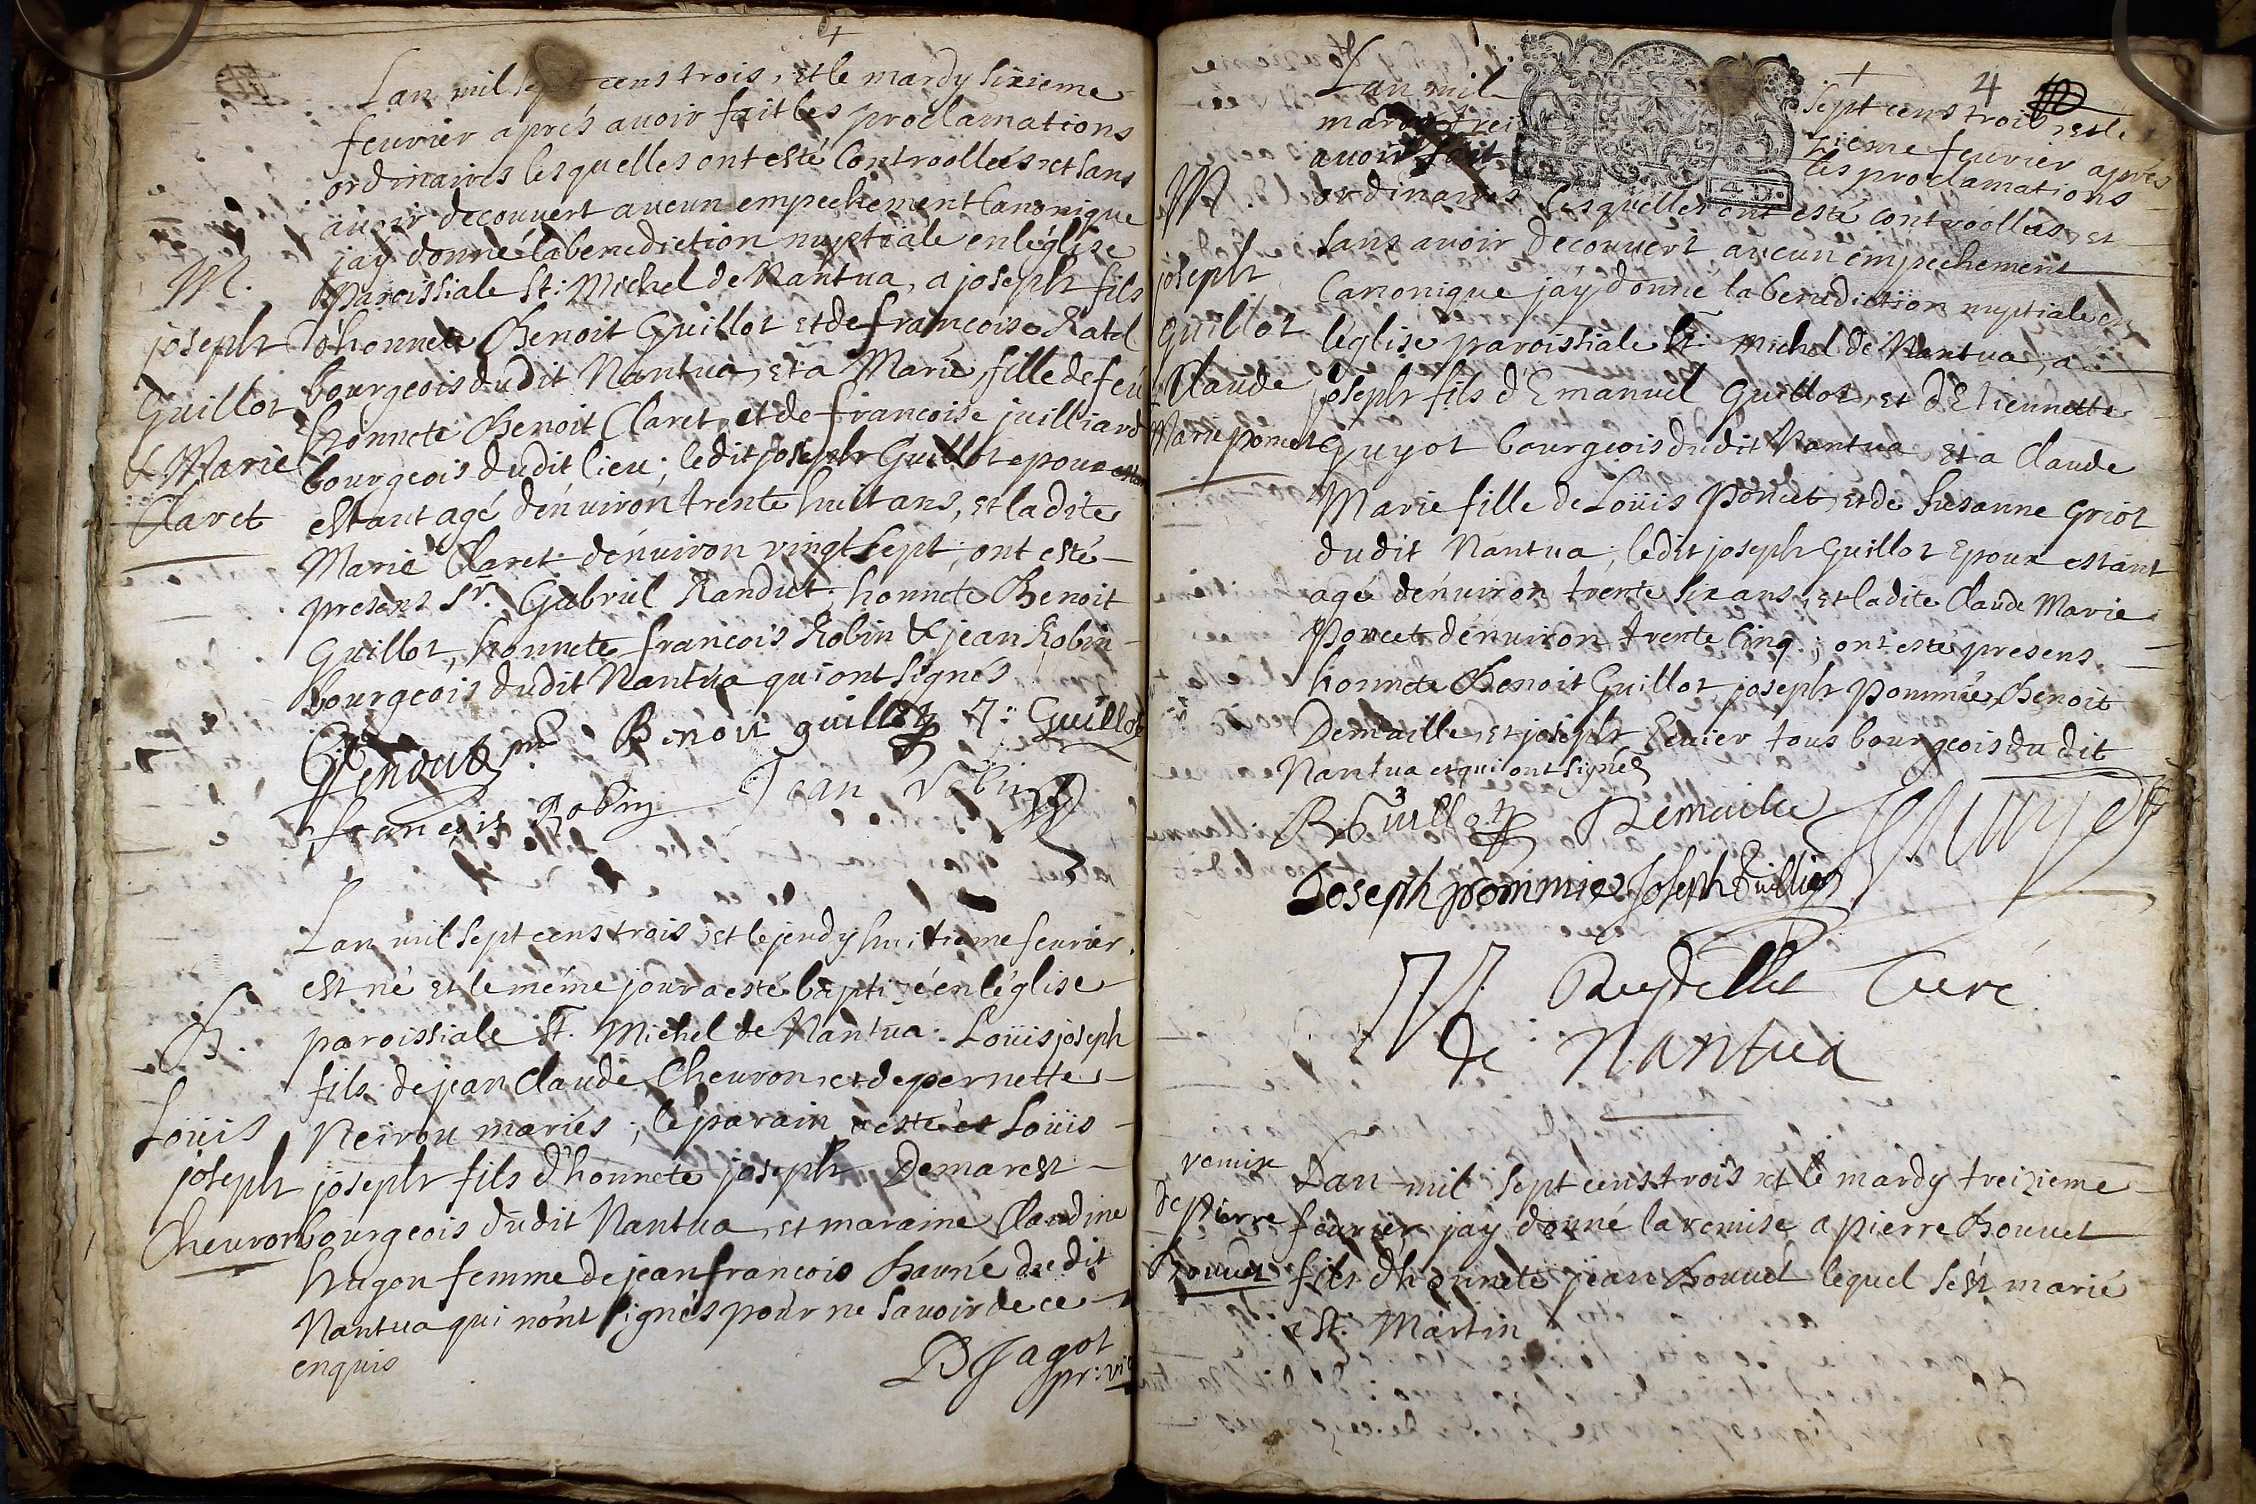 Lan mil sept cens trois, et le mardy sixieme
feurier aprés auoir fait les proclamations
ordinaires lesquelles ont esté controollées et sans
auoir decouuert aucun empechement Canonique
jay donné la benediction nuptiale en léglise
paroissiale St: Michel de Nantua, a joseph fils
d'honnete Benoit Guillot et de francoise Ratel
bourgeois dudit Nantua, et a Marie, fille de feu
honnete Benoit Claret, et de francoise juilliard
bourgeois dudit lieu; ledit joseph Guillot epoux
estant agé dénuiron trente huit ans, et ladite
Marie Claret dénuiron vingt sept; ont esté
presens Sr. Gabriel Randut, honnete Benoit
Guillot, honnete francois Robin & jean Robin
bourgeois dudit Nantua qui ont signés
M.
joseph
Guillot
& Marie
Claret
Benoit guillot J: Guillot
francois Robin Jean Robin
Lan mil sept cens trois, et le jeudy huitieme feurier
est né et le méme jour a esté baptizé en léglise
paroissiale St. Michel de Nantua: Loüis joseph
fils de jean Claude Cheuron, et de pernette
Neirou mariés; le parain a esté Loüis
joseph fils d'honnete joseph Demarest
bourgeois dudit Nantua, et maraine Claudine
hugon femme de jean francois Bauné dudit
Nantua qui nónt signés pour ne sauoir de ce
enquis
B.
Loüis
joseph
Cheuron
D Jagot
pr: vic
4
Lan mil sept cens trois, et le
mardy treizieme feurier aprés
auoir fait les proclamations
ordinaires lesquelles ont esté controollées, et
sans auoir decouuert aucun empechement
Canonique jáy donné la benediction nuptiale en
léglise paroissiale St. michel de Nantua, a
joseph fils d'Emanuel Guillot, et d'Etiennette
Guyot bourgeois dudit Nantua et a Claude
Marie fille de Loüis Poncet, et de Susanne Griot
dudit Nantua; ledit joseph Guillot epoux estant
agé dénuiron trente six ans, et ladite Claude Marie
Poncet dénuiron trente Cinq; ont esté presens
honnete Benoit Guillot, joseph pommier, Benoit
Demaille, et joseph tous bourgeois du dit
Nantua et qui ont signés
M.
joseph
Guillot
Claude
Marie poncet
B Guillot Demaille
Joseph pommier Joseph
Curé
de Nantua
Lan mil sept cens trois et le mardy treizieme
feurier jay donné la remise a pierre Bouuet
fils d'honnete jean Bouuet lequel sést marié
a St. Martin
remise
de pierre
Bouuet